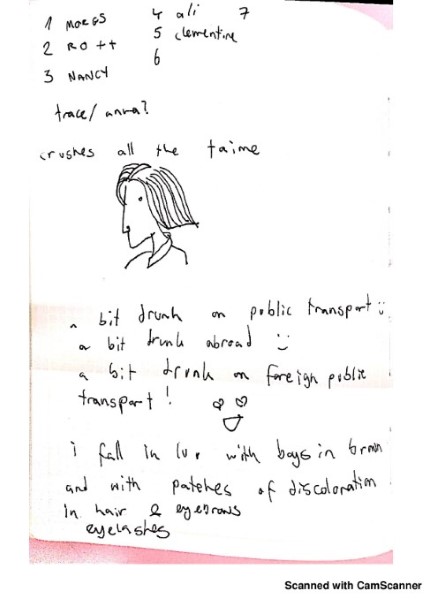 1 MORGS
2 ROtt
3 NANCY
4 ali
5 clementine
6
7
trace/anna?
crushes all the taime
a bit drunk on public transport :)
a bit drunk abroad :)
a bit drunk on foreign public
transport!
i fall in luv with boys in brown
and with patches of discoloration
In hair & eyebrows
eyelashes
Scanned with CamScanner